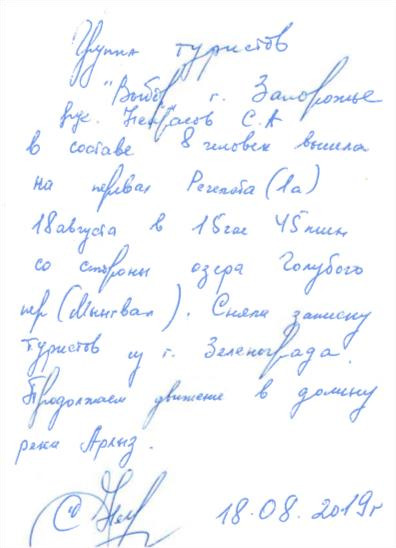 Группа туристов
"Выбор" г. Запорожье
рук. Некрасов С.А
в составе 8 человек вышла
на перевал Речепста (1а)
18 августа в 15час 45мин
со стороны озера Голубого
пер (Мынгвал). Сняли записку
туристов из г. Зеленограда.
Продолжаем движение в долину
реки Архыз.
18.08.2019г